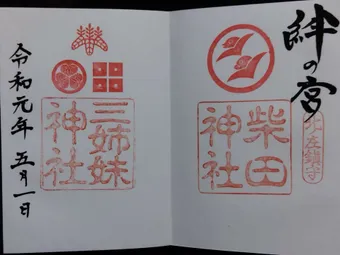 絆の宮
北庄鎮守
柴田神社
三姉妹神社
令和元年 五月一日